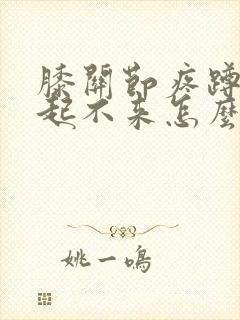 膝關節疼蹲
起不来怎麼
姚一鳴